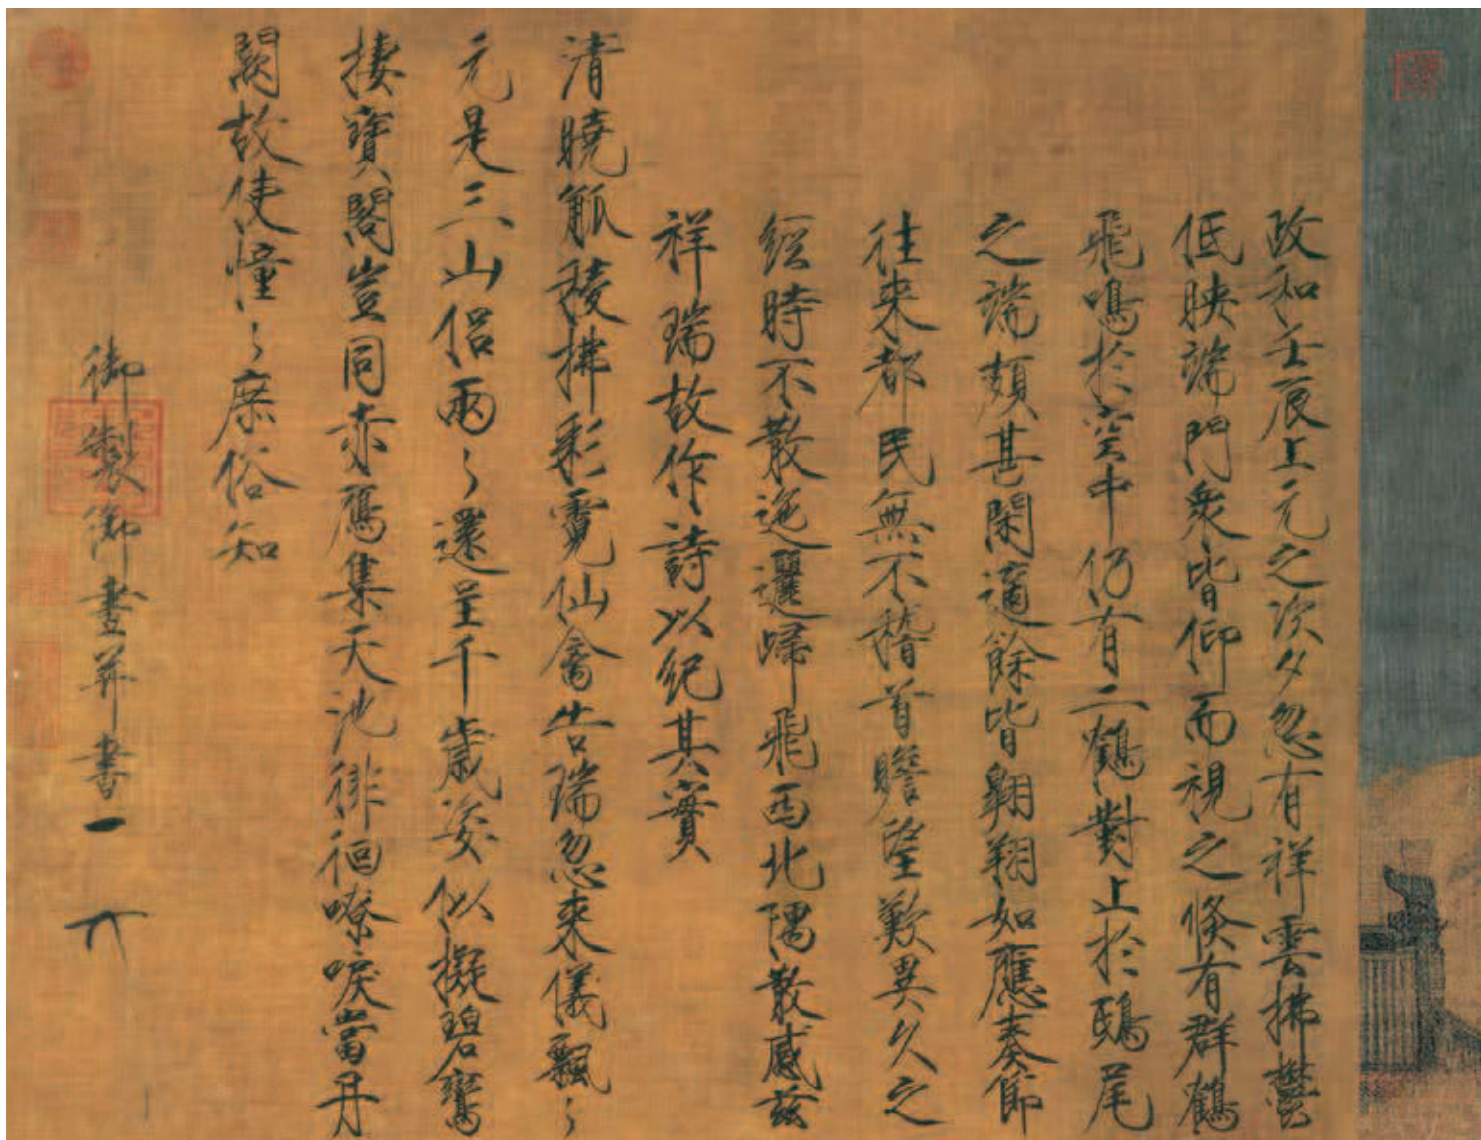 政和壬辰上元之次夕忽有祥雲拂鬱
低映端門衆皆仰而視之倐有群鶴
飛鳴於空中仍有二鶴對止於鴟尾
之端頗甚閑適餘皆翱翔如應奏節
往來都民無不稽首瞻望歎異久之
經時不散迤邐歸飛西北隅散感兹
祥瑞故作詩以紀其實
清曉觚稜拂彩霓仙禽告瑞忽來儀飄々
元是三山侣兩々還呈千歲姿似擬碧鸞
棲寶閣豈同赤鴈集天池徘徊嘹唳當丹
闕故使憧々庶俗知
御製御畫并書